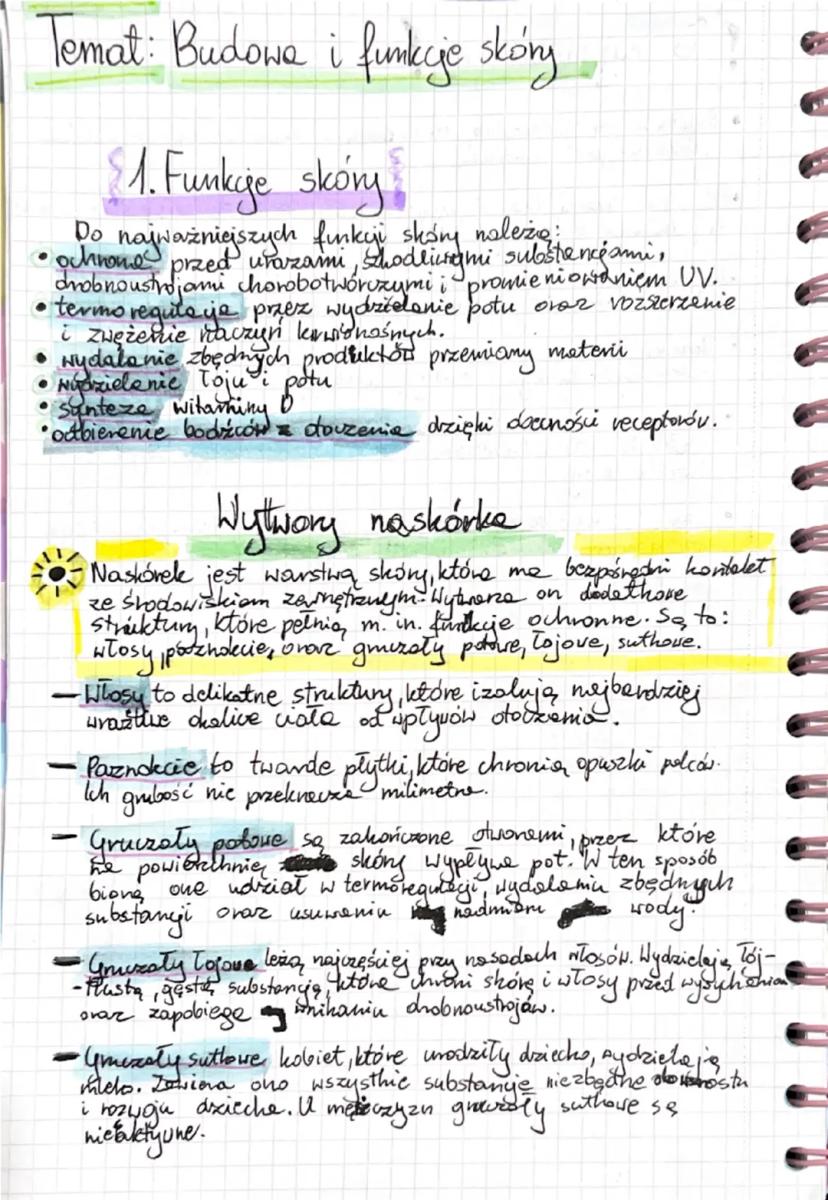 Temat: Budowa i funkcje skóry
1. Funkcje skóry
Do najważniejszych funkcji skóry należą:
• ochrona przed urazami, szkodliwymi substancjami,
drobnoustrojami chorobotwórczymi i promieniowaniem UV.
• termoregulacja przez wydzielanie potu oraz rozszerzenie
i zwężenie naczyń krwionośnych.
• wydalanie zbędnych produktów przemiany materii
• wydzielanie łoju i potu
• synteza witaminy D
• odbieranie bodźców z otoczenia dzięki obecności receptorów.
Wytwory naskórka
Naskórek jest warstwą skóry, która ma bezpośredni kontakt
ze środowiskiem zewnętrznym. Wytwarza on dodatkowe
struktury, które pełnią m. in. funkcje ochronne. Są to:
włosy, paznokcie, oraz gruczoły potowe, łojowe, sutkowe.
– Włosy to delikatne struktury, które izolują najbardziej
wrażliwe okolice ciała od wpływów otoczenia.
– Paznokcie to twarde płytki, które chronią opuszki palców.
Ich grubość nie przekracza milimetra.
– Gruczoły potowe są zakończone otworami, przez które
na powierzchnię skóry wypływa pot. W ten sposób
biorą one udział w termoregulacji, wydalaniu zbędnych
substancji oraz usuwaniu nadmiaru wody.
– Gruczoły łojowe leżą najczęściej przy nasadach włosów. Wydzielają łój-
-tłustą, gęstą substancję, która chroni skórę i włosy przed wysychaniem
oraz zapobiega wnikaniu drobnoustrojów.
– Gruczoły sutkowe kobiet, które urodziły dziecko, wydzielają
mleko. Zawiera ono wszystkie substancje niezbędne do wzrostu
i rozwoju dziecka. U mężczyzn gruczoły sutkowe są
nieaktywne.